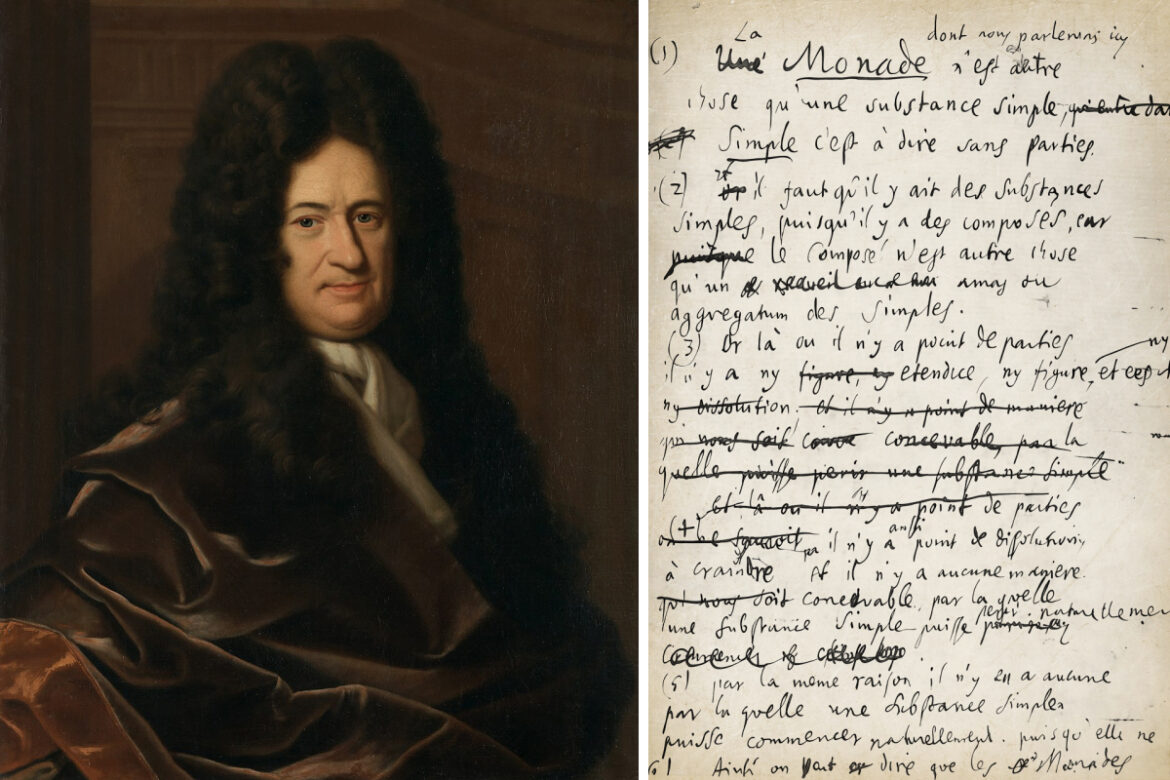 La dont nous parlerons icy
(1) Une Monade n'est autre
chose qu'une substance simple, qui entre dan
Simple c'est à dire sans parties.
(2) et il faut qu'il y ait des substances
simples, puisqu'il y a des composés, car
puisque le composé n'est autre chose
qu'un recueil amas ou
aggregatum des simples.
(3) Or là ou il n'y a point de parties
ny
il n'y a ny figure, ny etendue, ny figure, et
ny dissolution, et il n'y a point de maniere
qui nous soit concevable, par la
quelle puisse perir une substance simple
et là ou il n'y a point de parties
(4) on ne sçauroit il n'y a aussi point de dissolution
à craindre et il n'y a aucune maniere
qui nous soit concevable, par la quelle
une substance simple puisse perir naturellemen
(5) par la meme raison il n'y en a aucune
par la quelle une substance simple
puisse commencer naturellement. puisqu'elle ne
6) Ainsi on peut dire que les Monades